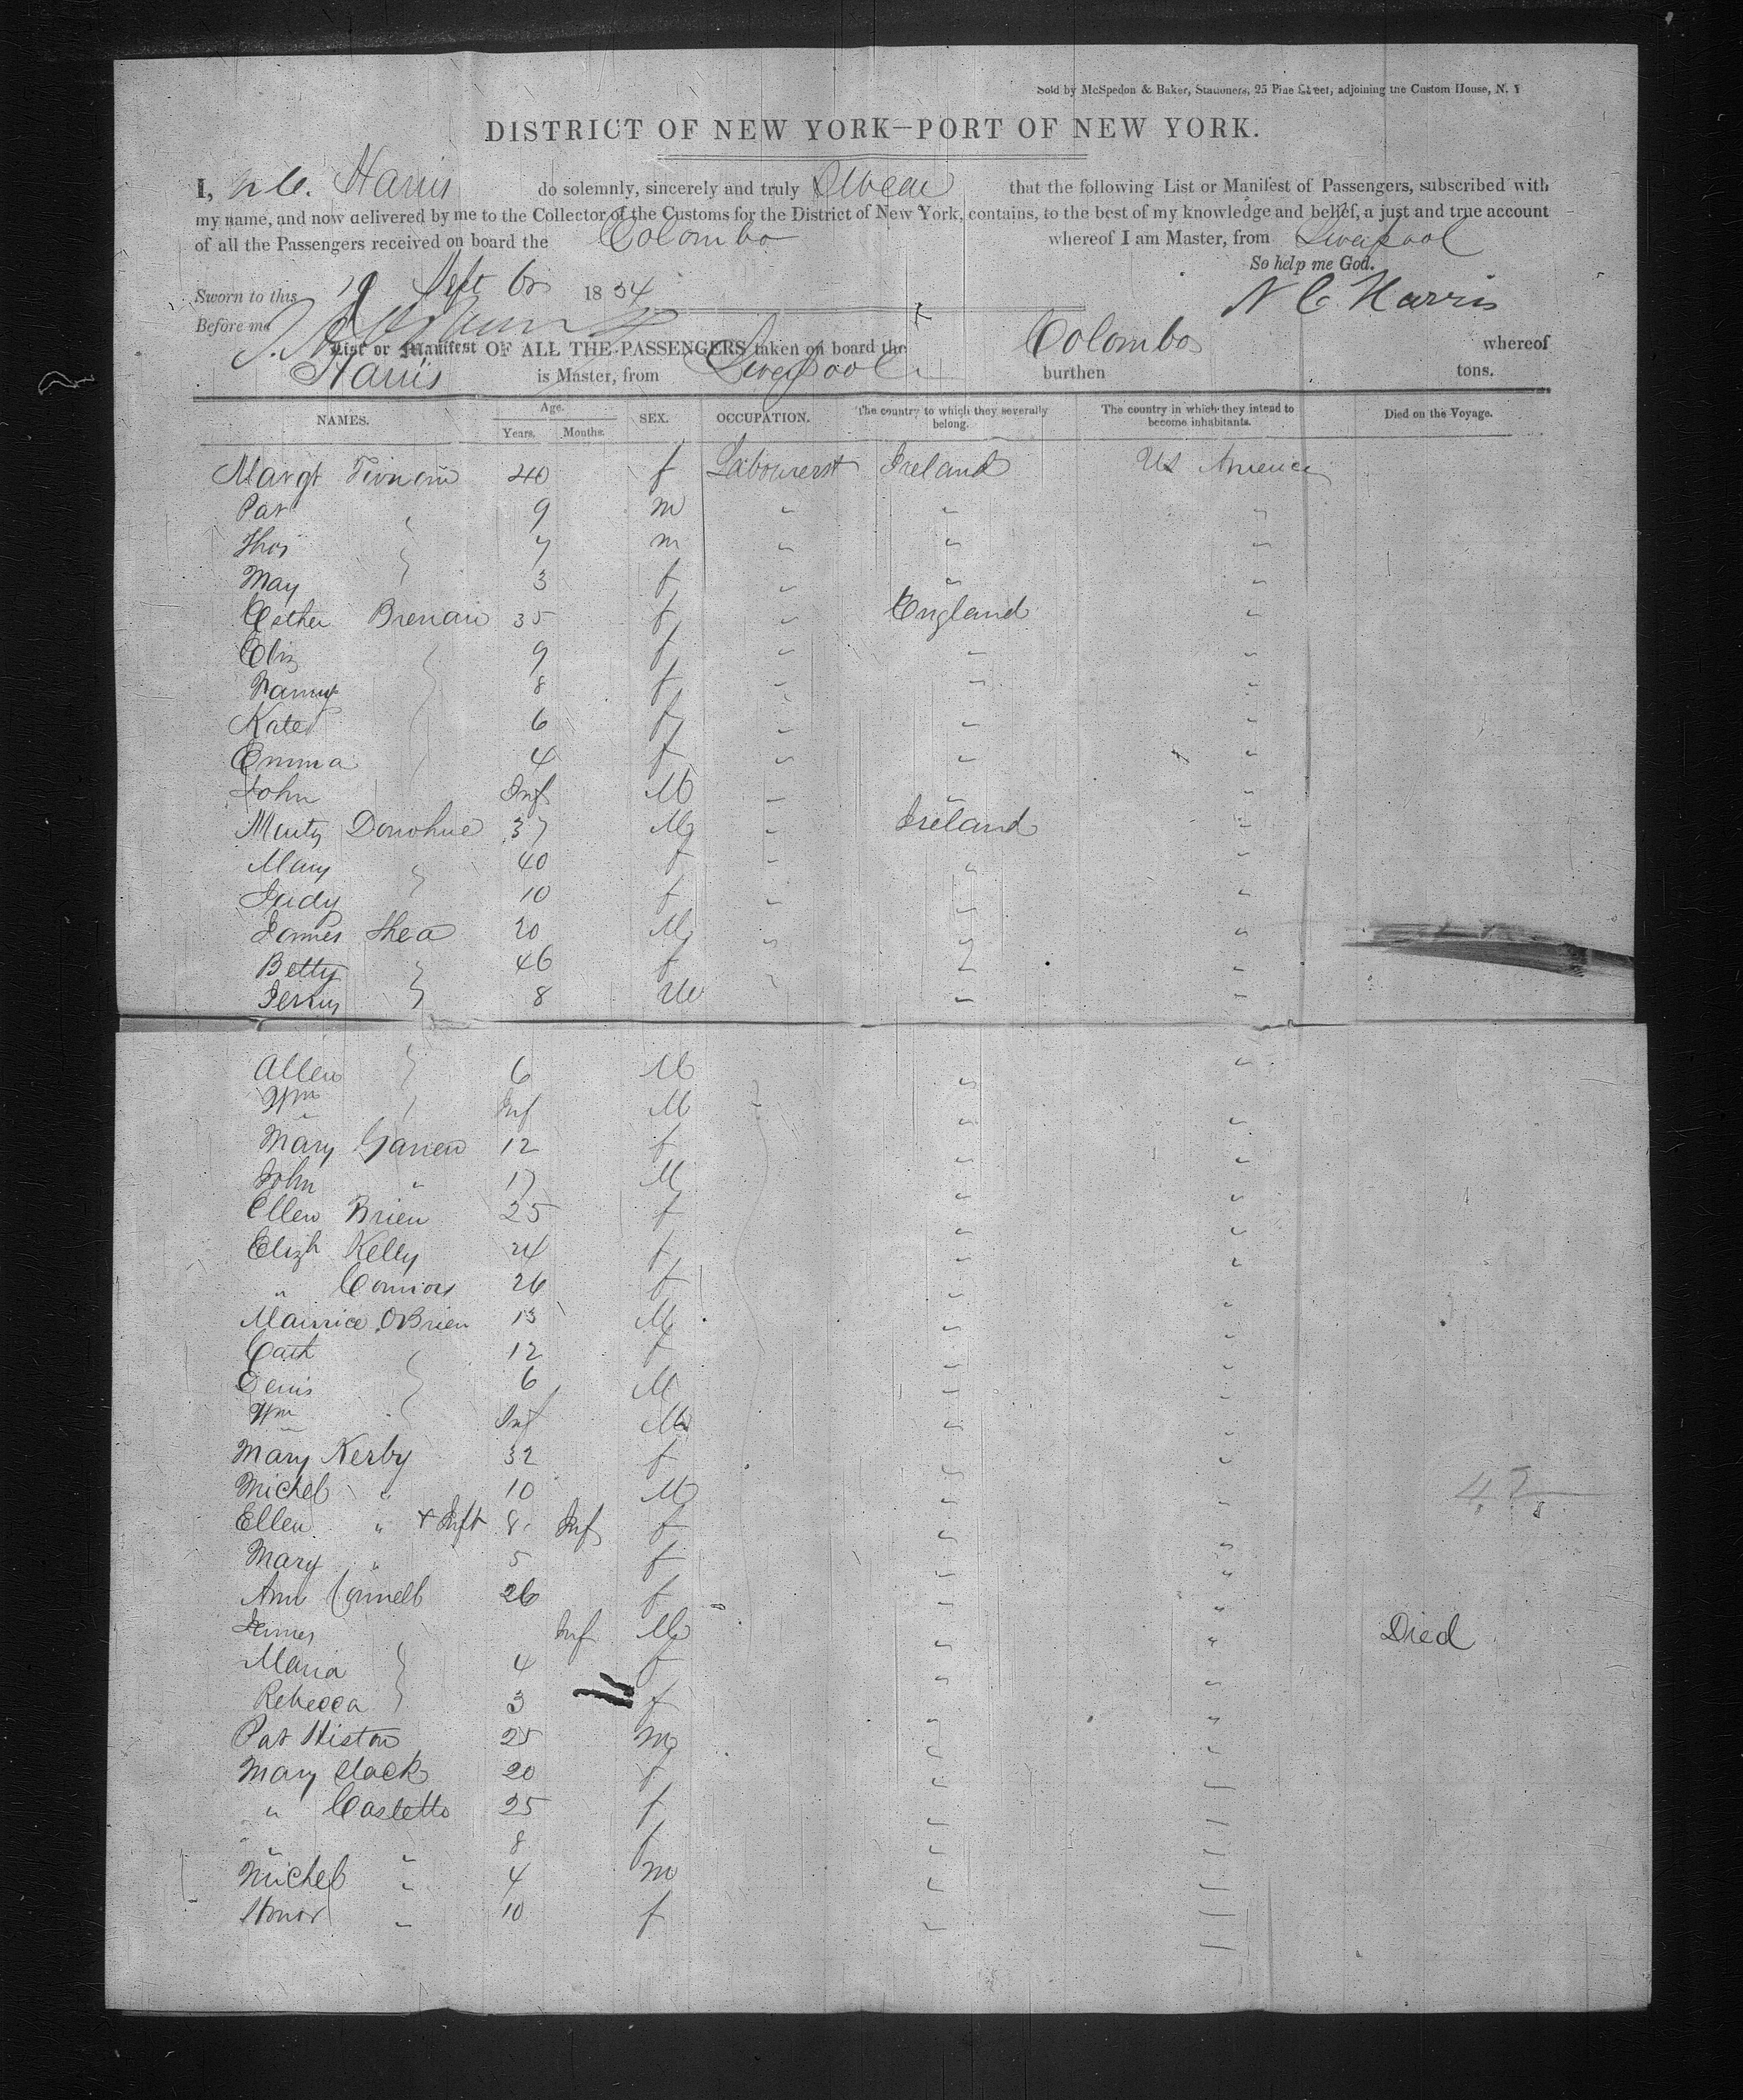 Sold by McSpedon & Baker, Stationers, 25 Pine Street, adjoining the Custom House, N. Y
DISTRICT OF NEW YORK—PORT OF NEW YORK.
I, N C. Harris do solemnly, sincerely and truly Swear that the following List or Manifest of Passengers, subscribed with
my name, and now delivered by me to the Collector of the Customs for the District of New York, contains, to the best of my knowledge and belief, a just and true account
of all the Passengers received on board the Colombo whereof I am Master, from Liverpool
So help me God.
Sworn to this 19 Sept 1854
N C Harris
Before me
List or Manifest OF ALL THE PASSENGERS taken on board the Colombo whereof
Harris is Master, from Liverpool burthen tons.
NAMES. Age. Years. Months. SEX. OCCUPATION. The country to which they severally belong. The country in which they intend to become inhabitants. Died on the Voyage.
Margt 40 f Labourerst Ireland US America
Pat " 9 m " " "
Thos " 7 m " " "
May " 3 f " " "
Esther Brenan 35 f " England "
Eliz 9 f " " "
Nanny 8 f " " "
Kate 6 f " " "
Emma 4 f " " "
John Inf M " " "
Marty Donohue 37 M " Ireland "
Mary 40 f " " "
Judy 10 f " " "
James Shea 20 M " " "
Betty 46 f " " "
Jerry 8 M " "
Allen 6 M " "
Wm Inf M " "
Mary 12 f " "
John " 17 M " "
Ellen Brien 25 f " "
Elizh Kelly 24 f " "
" Connors 26 f " "
Maurice OBrien 13 M " "
Cath 12 f " "
Denis 6 M " "
Wm Inf M " "
Mary Kerby 32 f " "
Michel " 10 M " "
42
Ellen " + Inft 8 Inf f " "
Mary " 5 f " "
Ann Connell 26 f " "
James Inf M " " Died
Maria 4 f " "
Rebecca 3 f " "
Pat Histon 25 m " "
Mary Slack 20 f " "
" Castello 25 f " "
" " 8 f " "
Michel " 4 m " "
Honor " 10 f " "